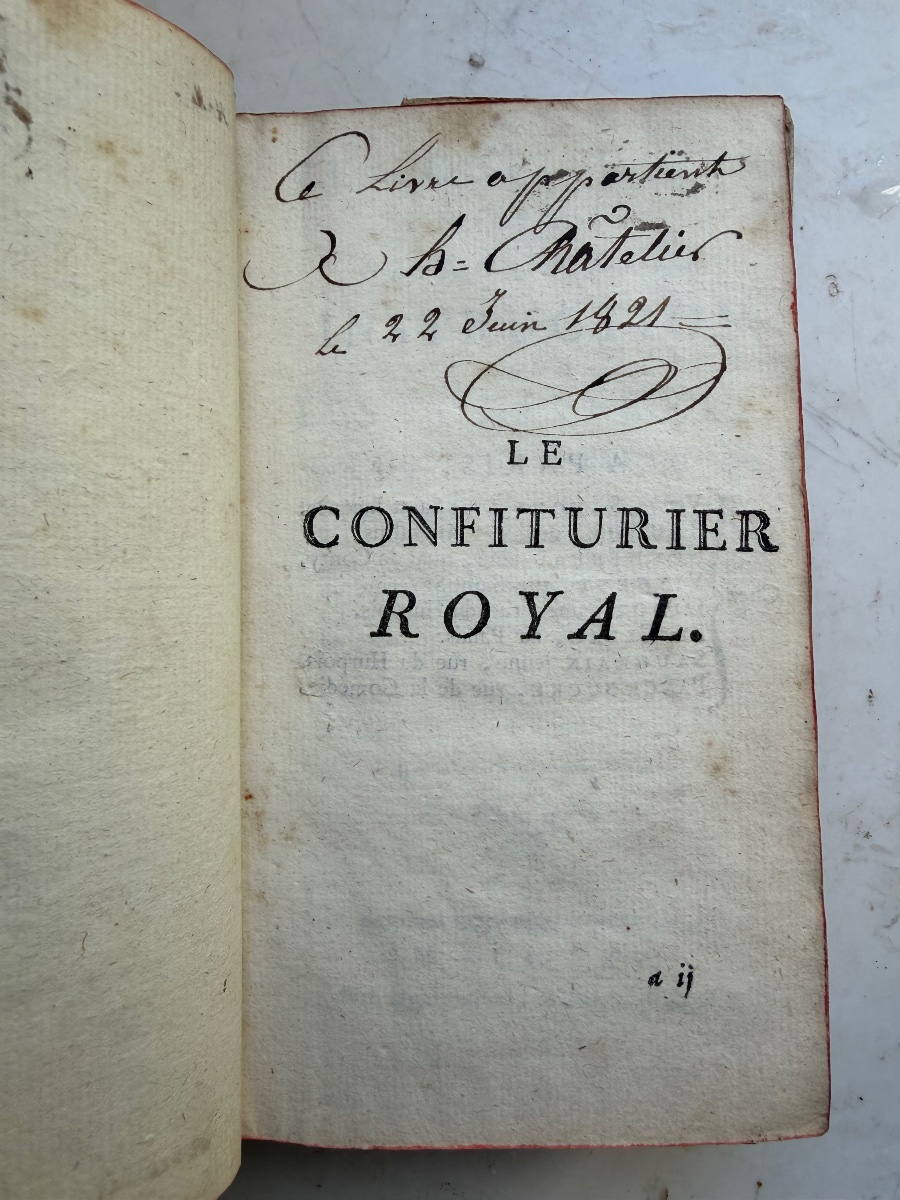 Ce Livre appartient
A h= Chatelier
le 22 Juin 1821
LE
CONFITURIER
ROYAL.
a ij